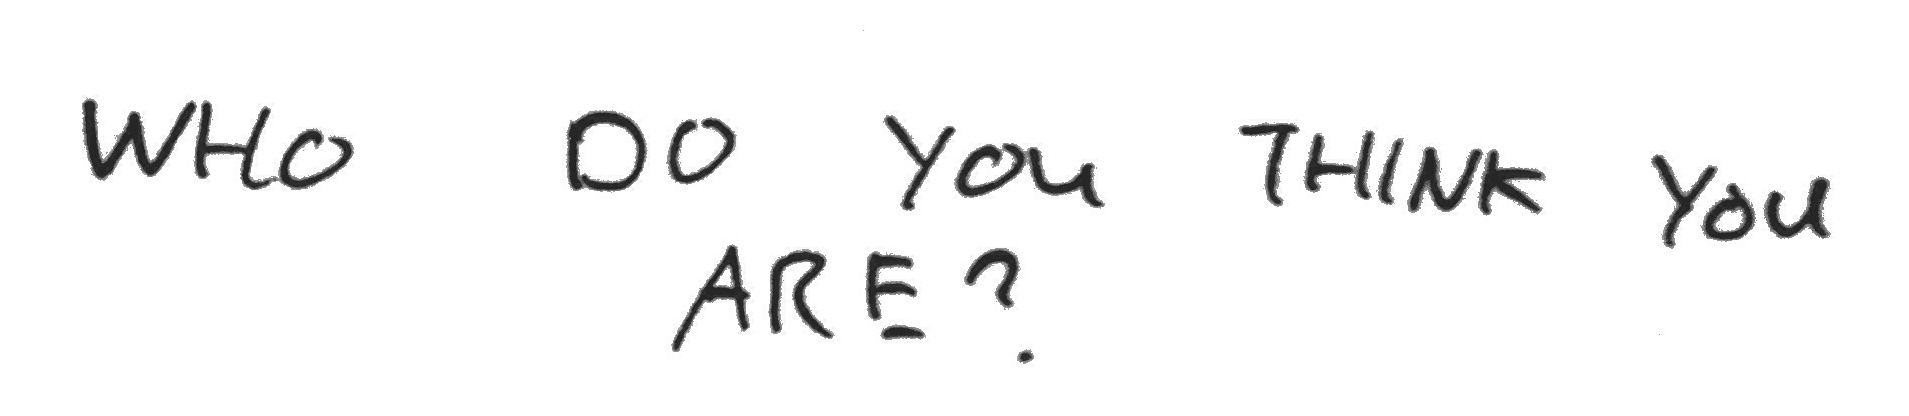 WHO DO YOU THINK YOU
ARE?